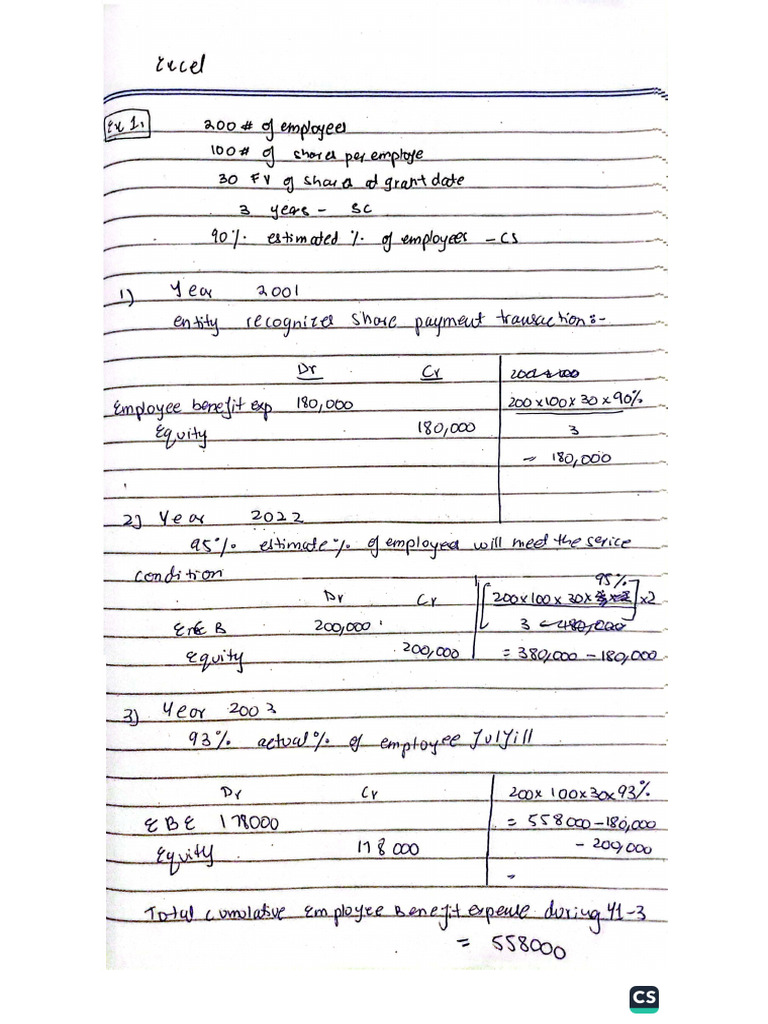 Excel
Ex 1.
200 # of employees
100 # of shares per employe
30 FV of share at grant date
3 years - SC
90% estimated % of employees - CS
1) Year 2001
entity recognizes share payment transaction:-
Dr Cr 200 x 100
Employee benefit exp 180,000 200x100x30x90%
Equity 180,000 3
= 180,000
2) Year 2022
95% estimate % of employees will meet the serice
condition
95%
Dr Cr 200x100x30x x2
E B 200,000 3 - 480,000
Equity 200,000 = 380,000 - 180,000
3) Year 2003
93% actual % of employee fulfill
Dr Cr 200x100x30x93%
EBE 178000 = 558000 - 180,000
Equity 178 000 - 200,000
=
Total cumulative Employee Benefit expense during Y1-3
= 558000
CS